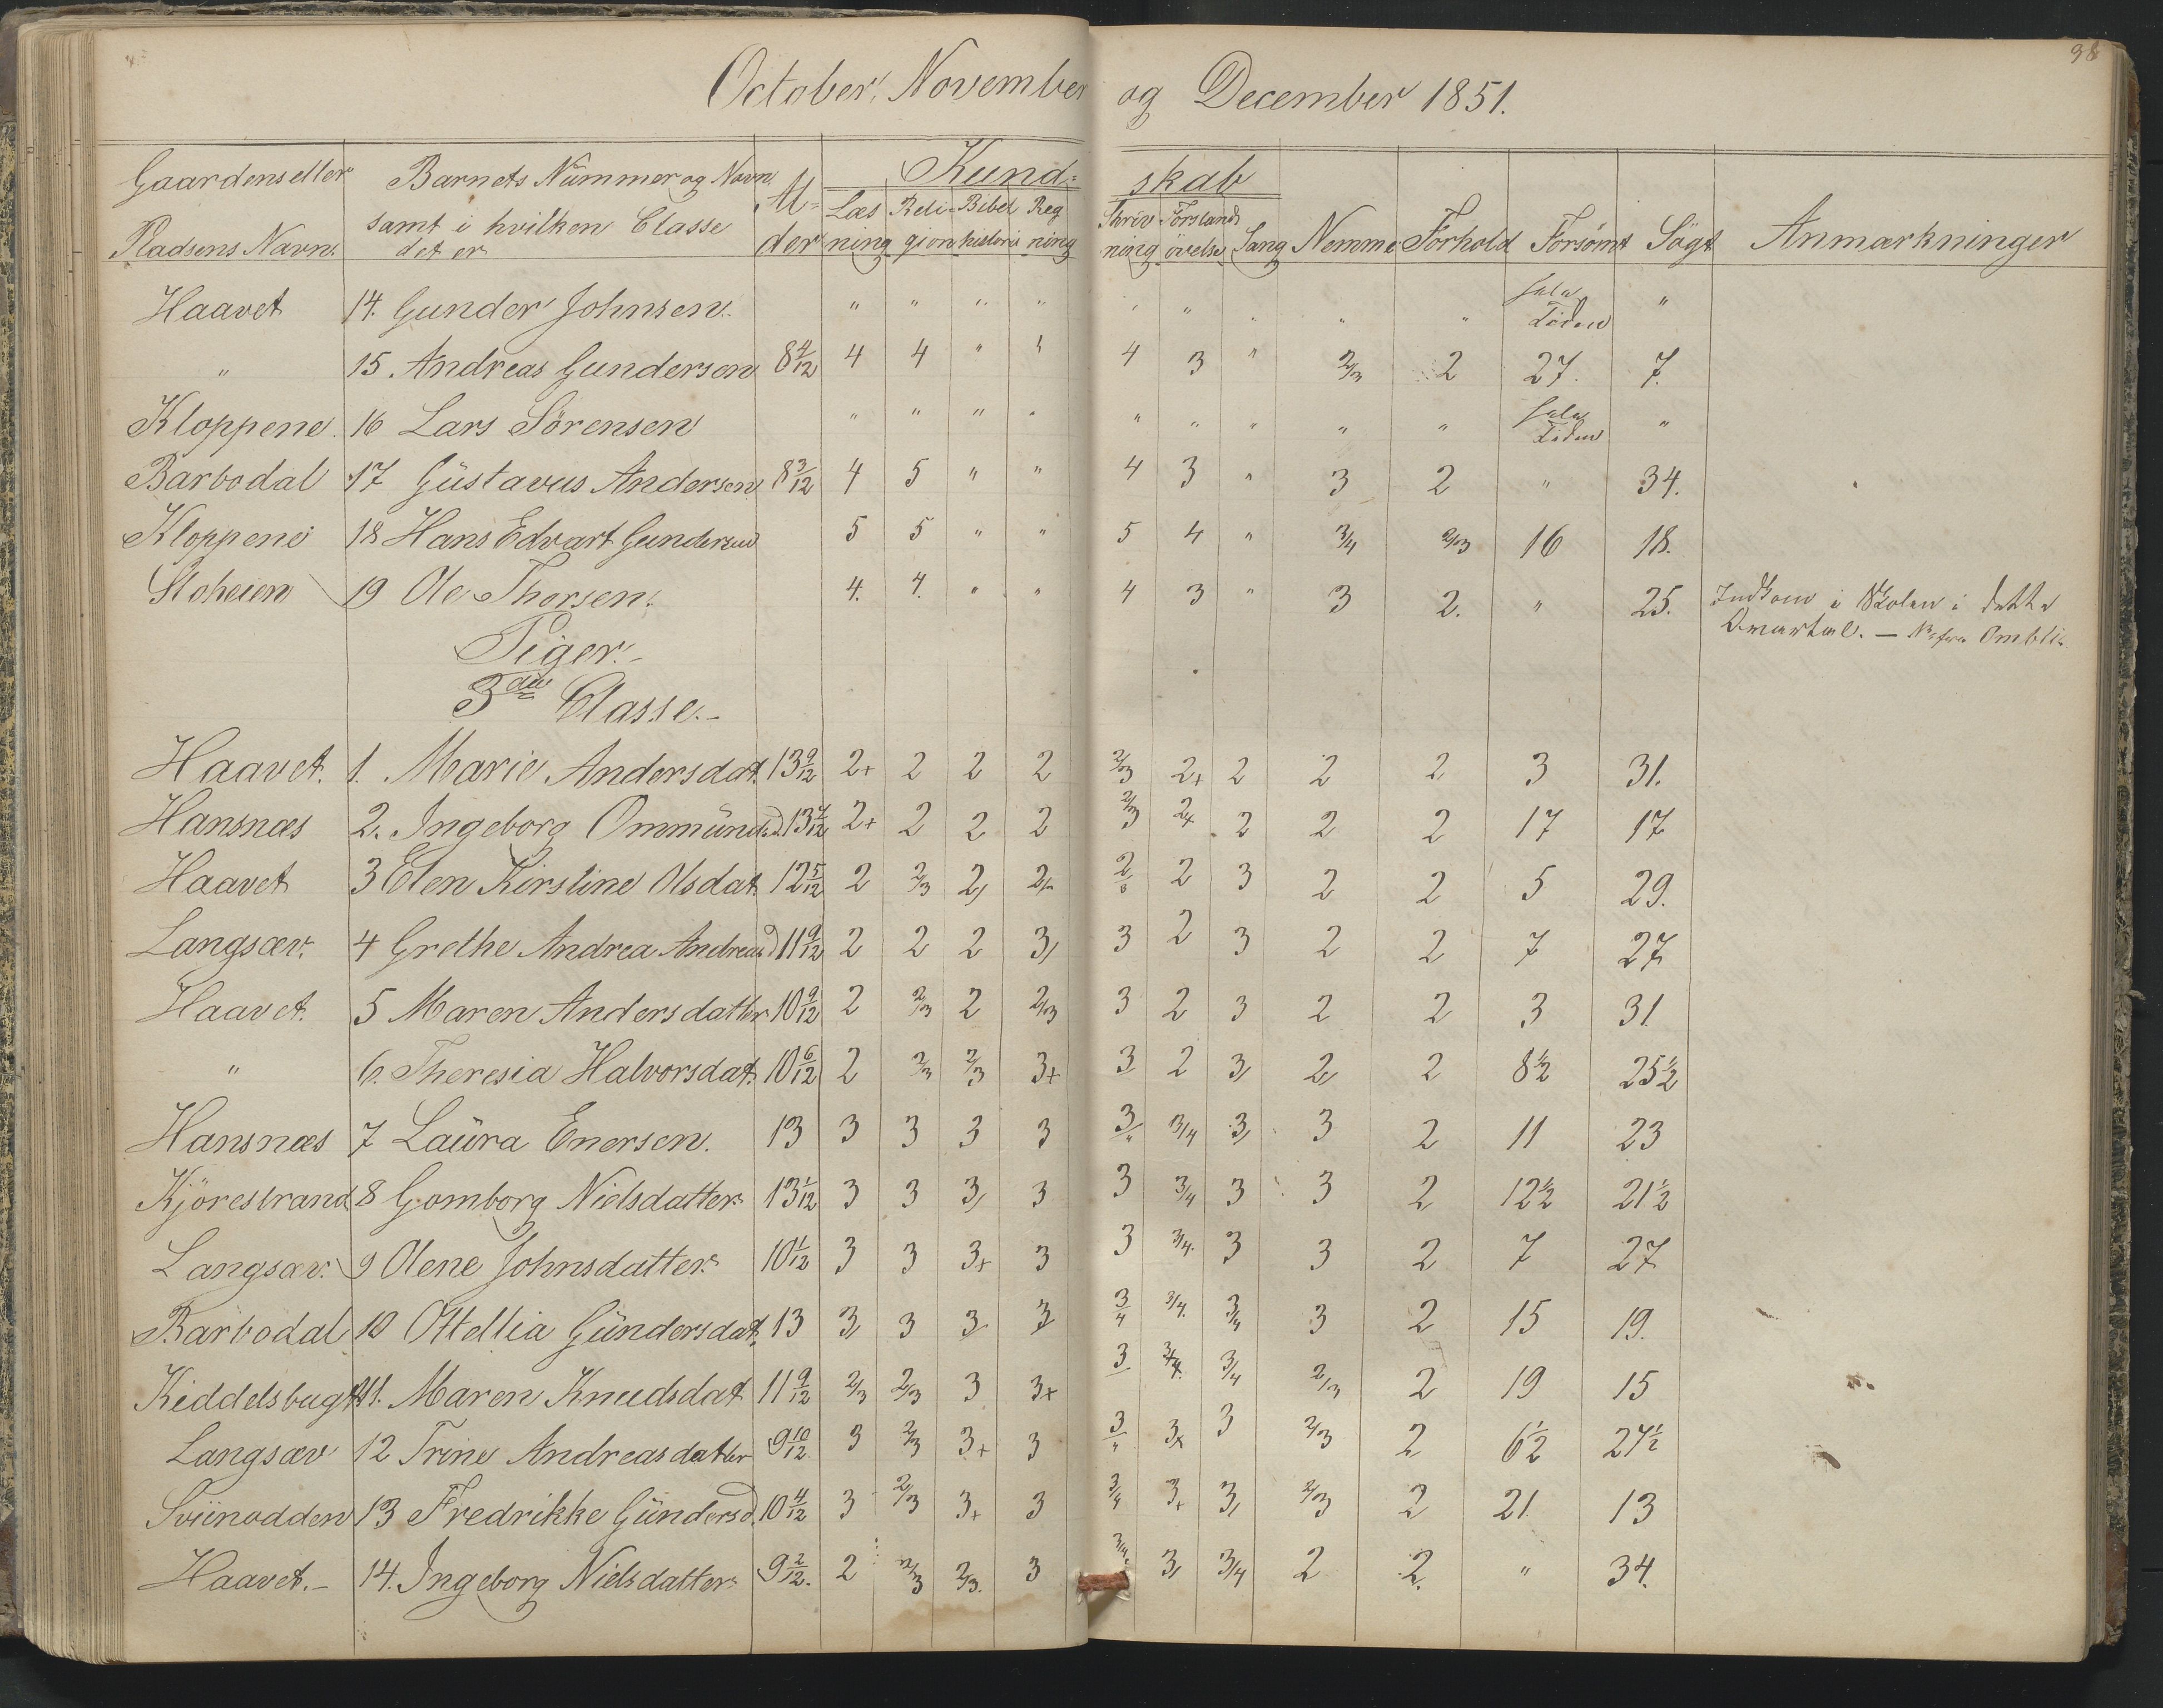 38
October, November og December 1851.
Gaardens eller Pladsens Navn. Barnets Nummer og Navn, samt i hvilken Classe det er Al-der Kund- skab
Læsning Religion Bibelhistorie Regning Skrivning Forstandsövelse Sang Nemme Forhold Forsömt Sögt Anmærkninger
Haavet 14. Gunder Johnsen. " " " " " " " " " hele Tiden "
" 15. Andreas Gundersen 8 4/12 4 4 " " 4 3 " 2/3 2 27. 7.
Kloppene. 16 Lars Sörensen " " " " " " " " " hele Tiden "
Barbodal 17 Güstavus Andersen 8 3/12 4 5 " " 4 3 " 3 2 " 34.
Kloppene 18 Hans Edvart Gundersen 5 5 " " 5 4 " 3/4 2/3 16 18.
Stoheien 19 Ole Thorsen. 4. 4. " " 4 3 " 3 2. " 25. Indkom i Skolen i dette
Qvartal. — fra Ombli
Piger.-
3die Classe.-
Haavet. 1. Marie Andersdat. 13 9/12 2+ 2 2 2 2/3 2+ 2 2 2 3 31.
Hansnæs 2. Ingeborg Ommünds.d. 13 7/12 2+ 2 2 2 2/3 2+ 2 2 2 17 17
Haavet 3 Elen Kirstine Olsdat. 12 5/12 2 2/3 2, 2- 2 3 2 2 5 29.
Langsæv. 4 Grethe Andrea Andreasd 11 9/12 2 2 2 3, 3 2 3 2 2 7 27
Haavet. 5 Maren Andersdatter 10 9/12 2 2/3 2 2/3 3 2 3 2 2 3 31
" 6. Theresia Halvorsdat. 10 6/12 2 2/3 2/3 3+ 3 2 3, 2, 2 8 1/2 25 1/2
Hansnæs 7 Laüra Enersen. 13 3 3 3 3 3 3/4 3, 3 2 11 23
Kjörestrand 8 Gomborg Nielsdatter 13 1/12 3 3 3, 3 3 3/4 3 3 2 12 1/2 21 1/2
Langsæv. 9 Olene Johnsdatter. 10 1/12 3 3 3+ 3 3 3/4. 3 3 2 7 27
Barbodal 10 Ottellia Gündersdat. 13 3, 3 3 3 3/4 3/4. 3/4 3 2 15 19.
Kiddelsbugt 11. Maren Knudsdat 11 9/12 2/3 2/3 3 3+ 3 3/4. 3/4 2/3 2 19 15
Langsæv 12 Trine Andreasdatter 9 10/12 3 2/3 3+ 3 3 3+ 3 2/3 2 6 1/2 27 1/2
Sviinodden 13 Fredrikke Gündersd. 10 4/12 3 2/3 3+ 3 3/4 3+ 3, 2/3 2 21 13
Haavet.- 14. Ingeborg Nielsdatter 9 2/12. 2 2/3 2/3. 3 3/4. 3, 3/4 2 2. " 34.